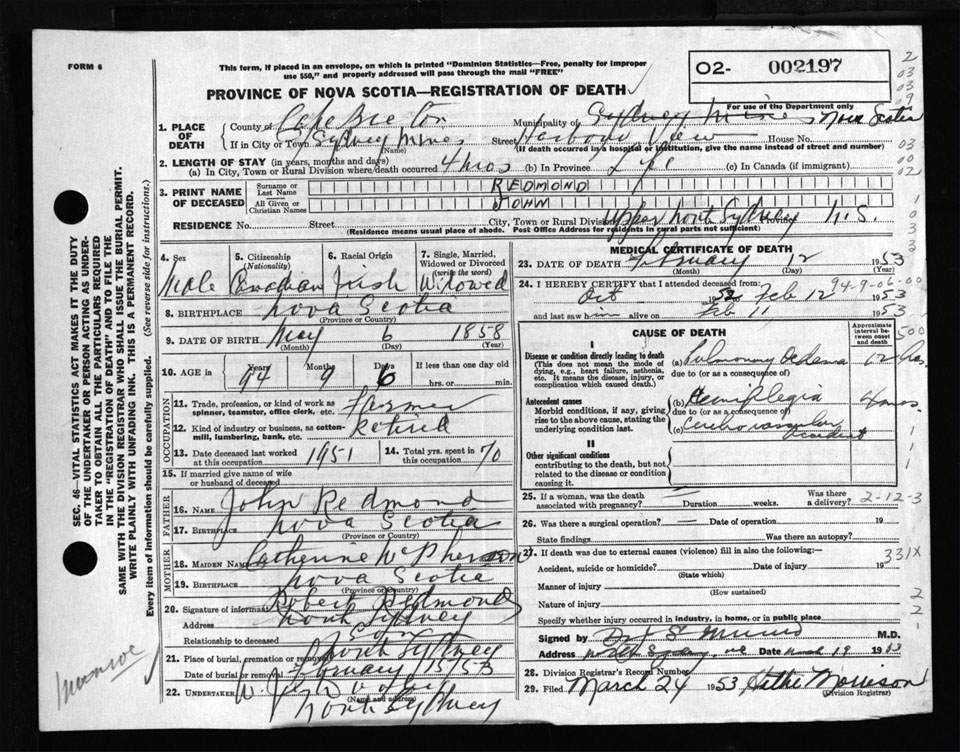 FORM 6
This form, if placed in an envelope, on which is printed "Dominion Statistics—Free, penalty for improper
use $50," and properly addressed will pass through the mail "FREE"
PROVINCE OF NOVA SCOTIA—REGISTRATION OF DEATH
O2- 002197
For use of the Department only
1. PLACE OF DEATH
County of Cape Breton Municipality of Sydney Mines Nova Scotia
If in City, Town Sydney Mines Street Harbour View House No.
(Name) (If death occurred in a hospital or institution, give the name instead of street and number)
2. LENGTH OF STAY (in years, months and days)
(a) In City, Town or Rural Division where death occurred 4 mos (b) In Province Life (c) In Canada (if immigrant)
3. PRINT NAME OF DECEASED
Surname or Last Name REDMOND
All Given or Christian Names JOHN
RESIDENCE No. Street City, Town or Rural Division Upper North Sydney Province N.S.
(Residence means usual place of abode. Post Office Address for residents in rural parts not sufficient)
4. Sex Male
5. Citizenship (Nationality) Canadian
6. Racial Origin Irish
7. Single, Married, Widowed or Divorced (write the word) Widowed
8. BIRTHPLACE Nova Scotia
(Province or Country)
9. DATE OF BIRTH May 6 1858
(Month) (Day) (Year)
10. AGE in Years Months Days If less than one day
94 9 6 hrs. or min.
OCCUPATION
11. Trade, profession, or kind of work as spinner, teamster, office clerk, etc. Farmer
12. Kind of industry or business, as cotton-mill, lumbering, bank, etc. Retired
13. Date deceased last worked at this occupation 1951
14. Total yrs. spent in this occupation 70
15. If married give name of wife or husband of deceased
FATHER
16. Name John Redmond
17. Birthplace Nova Scotia
(Province or Country)
MOTHER
18. MAIDEN Name Catherine McPherson
19. BIRTHPLACE Nova Scotia
(Province or Country)
20. Signature of informant Robert Redmond
Address North Sydney
Relationship to deceased Son
21. Place of burial, cremation or removal North Sydney
Date of burial or removal February 15/53
22. UNDERTAKER W. J.
(Name and address)
North Sydney
MEDICAL CERTIFICATE OF DEATH
23. DATE OF DEATH February 12 1953
(Month) (Day) (Year)
24. I HEREBY CERTIFY that I attended deceased from:
Oct 1952 Feb 12 1953
94-9-06-00
and last saw him alive on Feb 11 1953
CAUSE OF DEATH
Approximate interval between onset and death
I
Disease or condition directly leading to death (a) Pulmonary Oedema 12 hrs.
(This does not mean the mode of dying, e.g., heart failure, asthenia, etc. It means the disease, injury, or complication which caused death.)
due to (or as a consequence of)
Antecedent causes (b) Hemiplegia 4 mos.
Morbid conditions, if any, giving rise to the above cause, stating the underlying condition last.
due to (or as a consequence of)
(c) Cerebrovascular accident
II
Other significant conditions
contributing to the death, but not related to the disease or condition causing it.
25. If a woman, was the death associated with pregnancy? Duration weeks. Was there a delivery?
2-12-3
26. Was there a surgical operation? Date of operation 19
State findings Was there an autopsy?
27. If death was due to external causes (violence) fill in also the following:—
Accident, suicide or homicide? Date of injury 19
(State which)
331X
Manner of injury
(How sustained)
Nature of injury
Specify whether injury occurred in industry, in home, or in public place
Signed by M.D.
Address North Sydney, Date March 19 1953
28. Division Registrar's Record Number
29. Filed March 24 1953 Morrison
(Division Registrar)
SEC. 46—VITAL STATISTICS ACT MAKES IT THE DUTY
OF THE UNDERTAKER OR PERSON ACTING AS UNDER-
TAKER TO OBTAIN ALL THE PARTICULARS REQUIRED
IN THE "REGISTRATION OF DEATH" AND TO FILE THE
SAME WITH THE DIVISION REGISTRAR WHO SHALL ISSUE THE BURIAL PERMIT.
WRITE PLAINLY WITH UNFADING INK. THIS IS A PERMANENT RECORD.
Every item of information should be carefully supplied. (See reverse side for instructions.)
Munroe